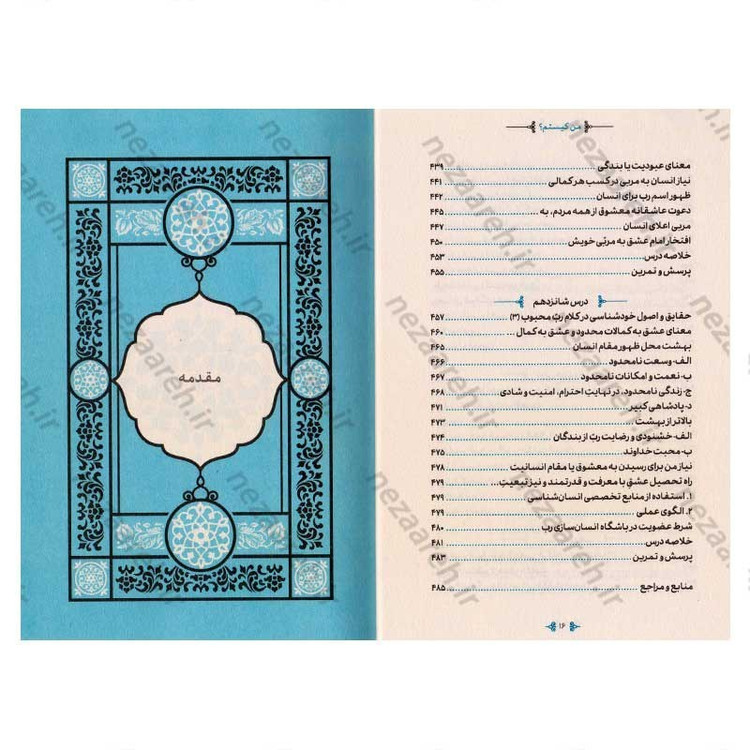 من کیستم؟
معنای عبودیت یا بندگی ۴۳۹
نیاز انسان به مربی در کسب هر کمالی ۴۴۱
ظهور اسم رب برای انسان ۴۴۲
دعوت عاشقانه معشوق از همه مردم، به ۴۴۵
مربی اعلای انسان ۴۴۷
افتخار امام عشق به مربّی خویش ۴۵۰
خلاصه درس ۴۵۳
پرسش و تمرین ۴۵۵
درس شانزدهم
حقایق و اصول خودشناسی در کلام ربّ محبوب (۳) ۴۵۷
معنای عشق به کمالات محدود و عشق به کمال... ۴۶۰
بهشت محل ظهور مقام انسان ۴۶۵
الف- وسعت نامحدود ۴۶۶
ب- نعمت و امکانات نامحدود ۴۶۷
ج- زندگی نامحدود، در نهایتِ احترام، امنیت و شادی ۴۶۸
د- پادشاهی کبیر ۴۷۱
بالاتر از بهشت... ۴۷۳
الف- خشنودی و رضایت ربّ از بندگان ۴۷۴
ب- محبت خداوند ۴۷۶
نیاز من برای رسیدن به معشوق یا مقام انسانیت ۴۷۸
راه تحصیل عشقِ با معرفت و قدرتمند و نیز تبعیتِ... ۴۷۹
۱. استفاده از منابع تخصصی انسان‌شناسی ۴۷۹
۲. الگوی عملی ۴۷۹
شرط عضویت در باشگاه انسان‌سازی رب ۴۸۰
خلاصه درس ۴۸۱
پرسش و تمرین ۴۸۳
منابع و مراجع ۴۸۵
۱۶
مقدمه
nezaareh.ir